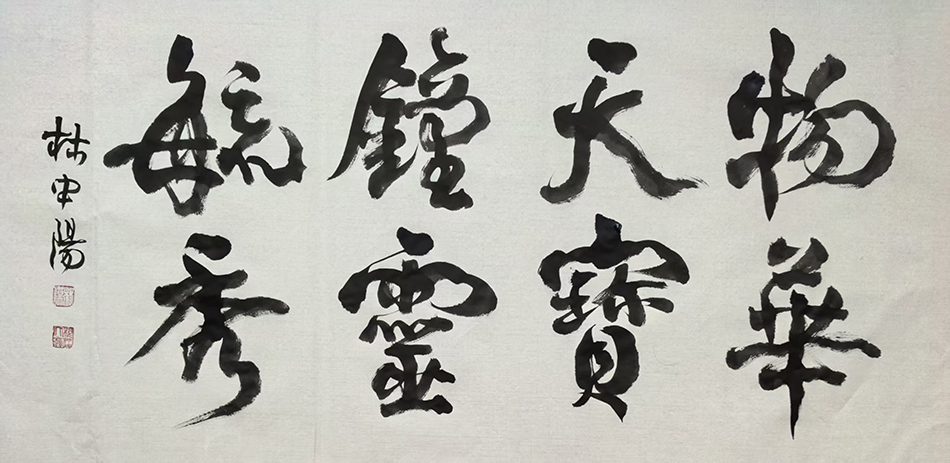 物華
天寶
鐘靈
毓秀
林中陽